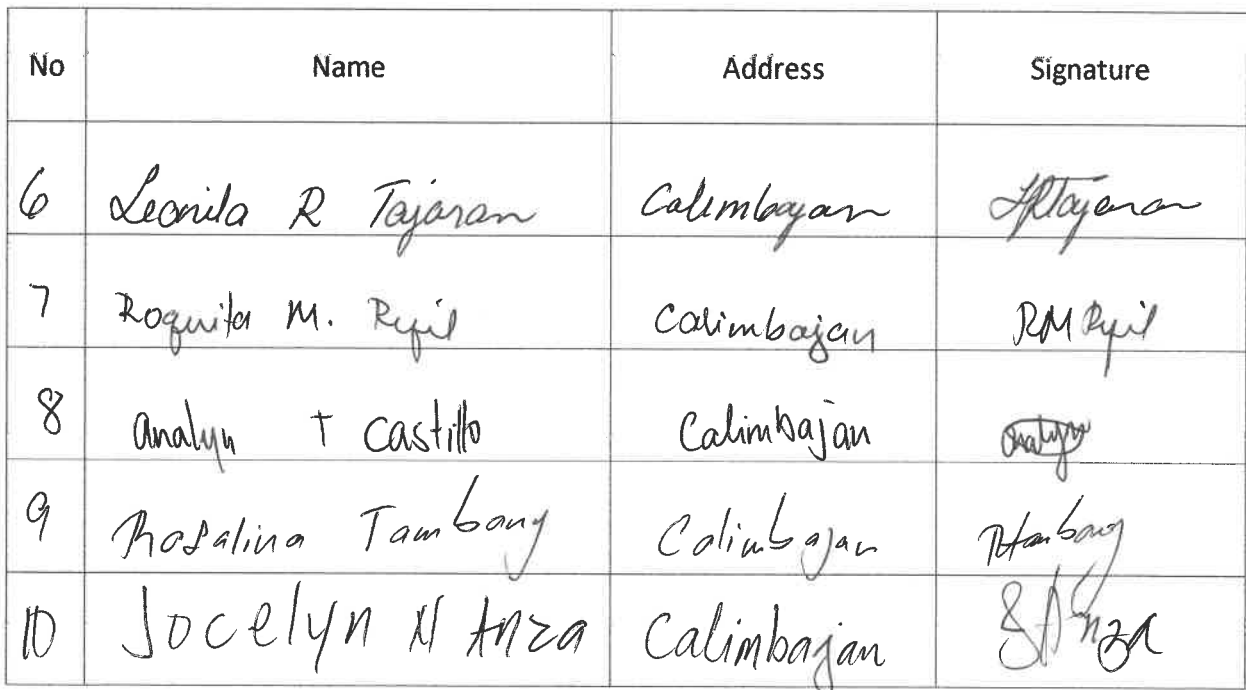 No Name Address Signature
6 Leonila R Tajaran Calimbajan LRTajaran
7 Roquita M. Repil Calimbajan RM Repil
8 Analyn T Castillo Calimbajan Analyn
9 Rosalina Tambong Calimbajan RTambong
10 Jocelyn N Anza Calimbajan JAnza